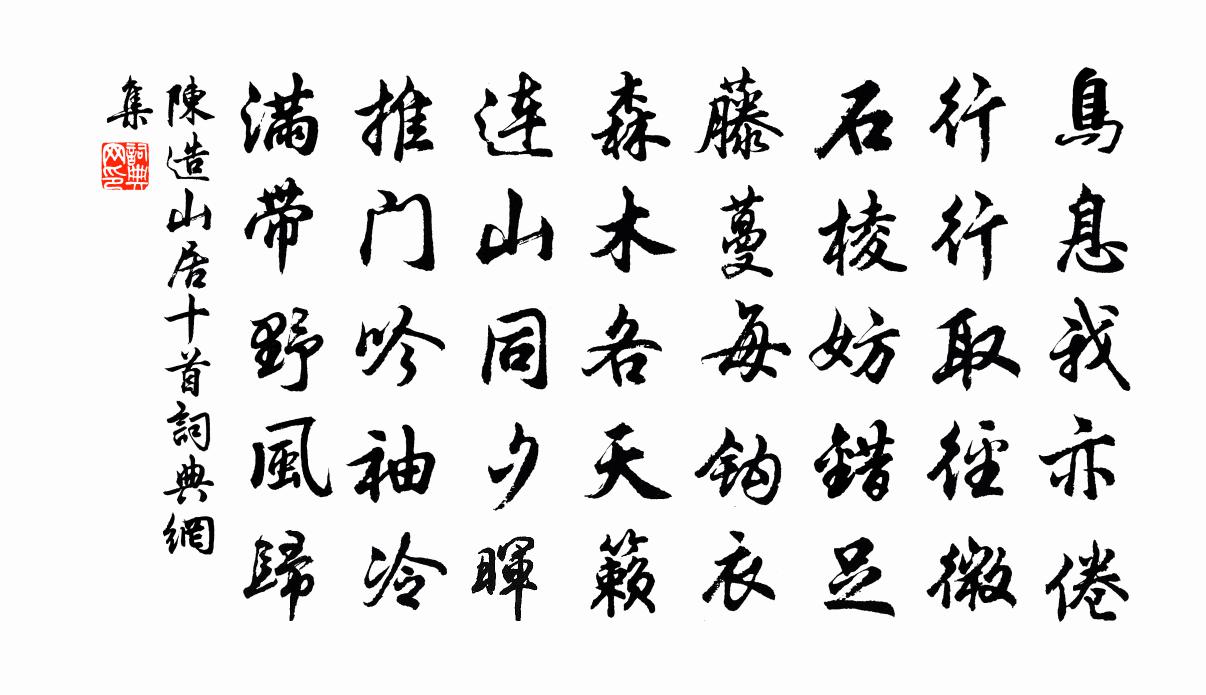 鳥息我亦倦
行行取徑微
石棱妨錯足
藤蔓每鈎衣
森木各天籟
連山同夕暉
推门吟袖冷
滿帶野風歸
陳造山居十首詞典網
集
詞典
网印